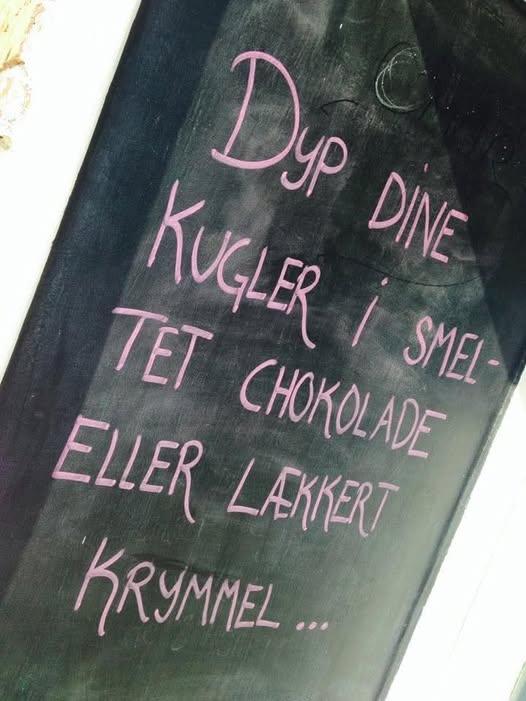 Dyp DINE
KUGLER i SMEL-
TET CHOKOLADE
ELLER LÆKKERT
KRYMMEL...